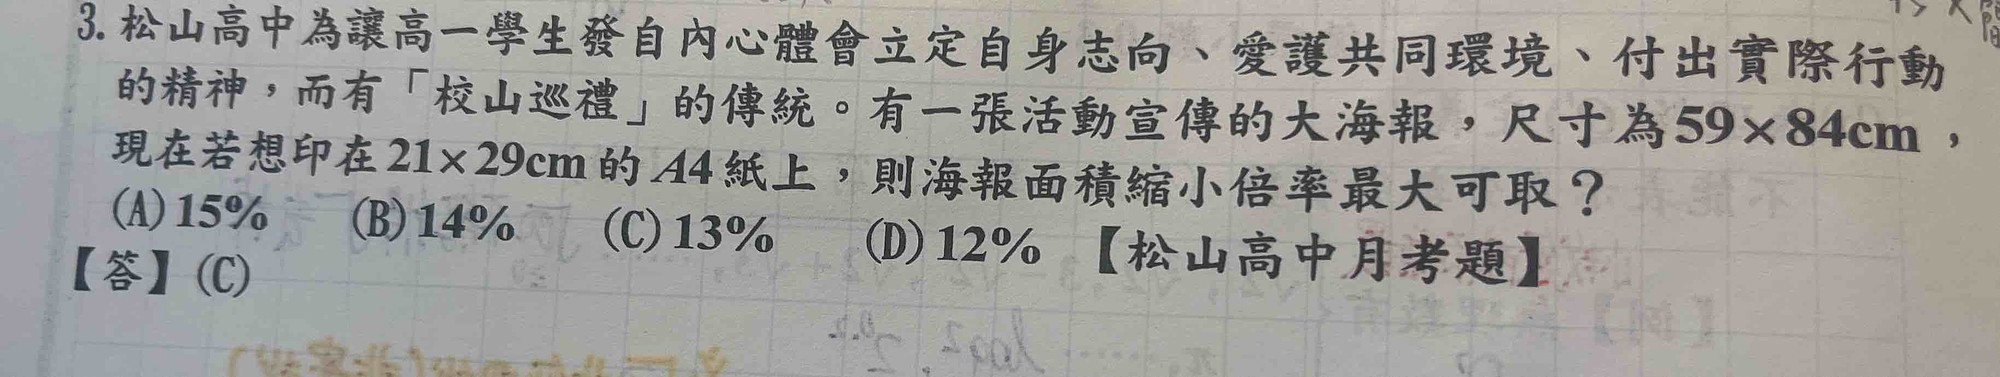 3. 松山高中為讓高一學生發自內心體會立定自身志向、愛護共同環境、付出實際行動
的精神，而有「校山巡禮」的傳統。有一張活動宣傳的大海報，尺寸為59×84cm，
現在若想印在21×29cm的A4紙上，則海報面積縮小倍率最大可取？
(A)15% (B)14% (C)13% (D)12% 【松山高中月考題】
【答】(C)